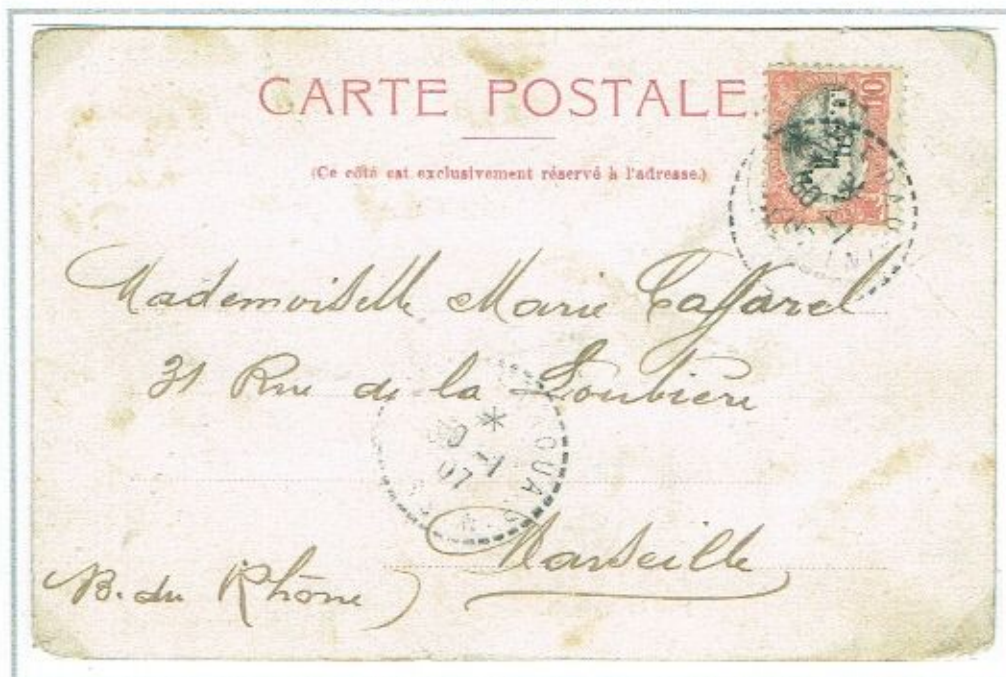 CARTE POSTALE.
10
(Ce côté est exclusivement réservé à l'adresse.)
Mademoiselle Marie Caffarel
31 Rue de la Loubière
Marseille
B. du Rhône)